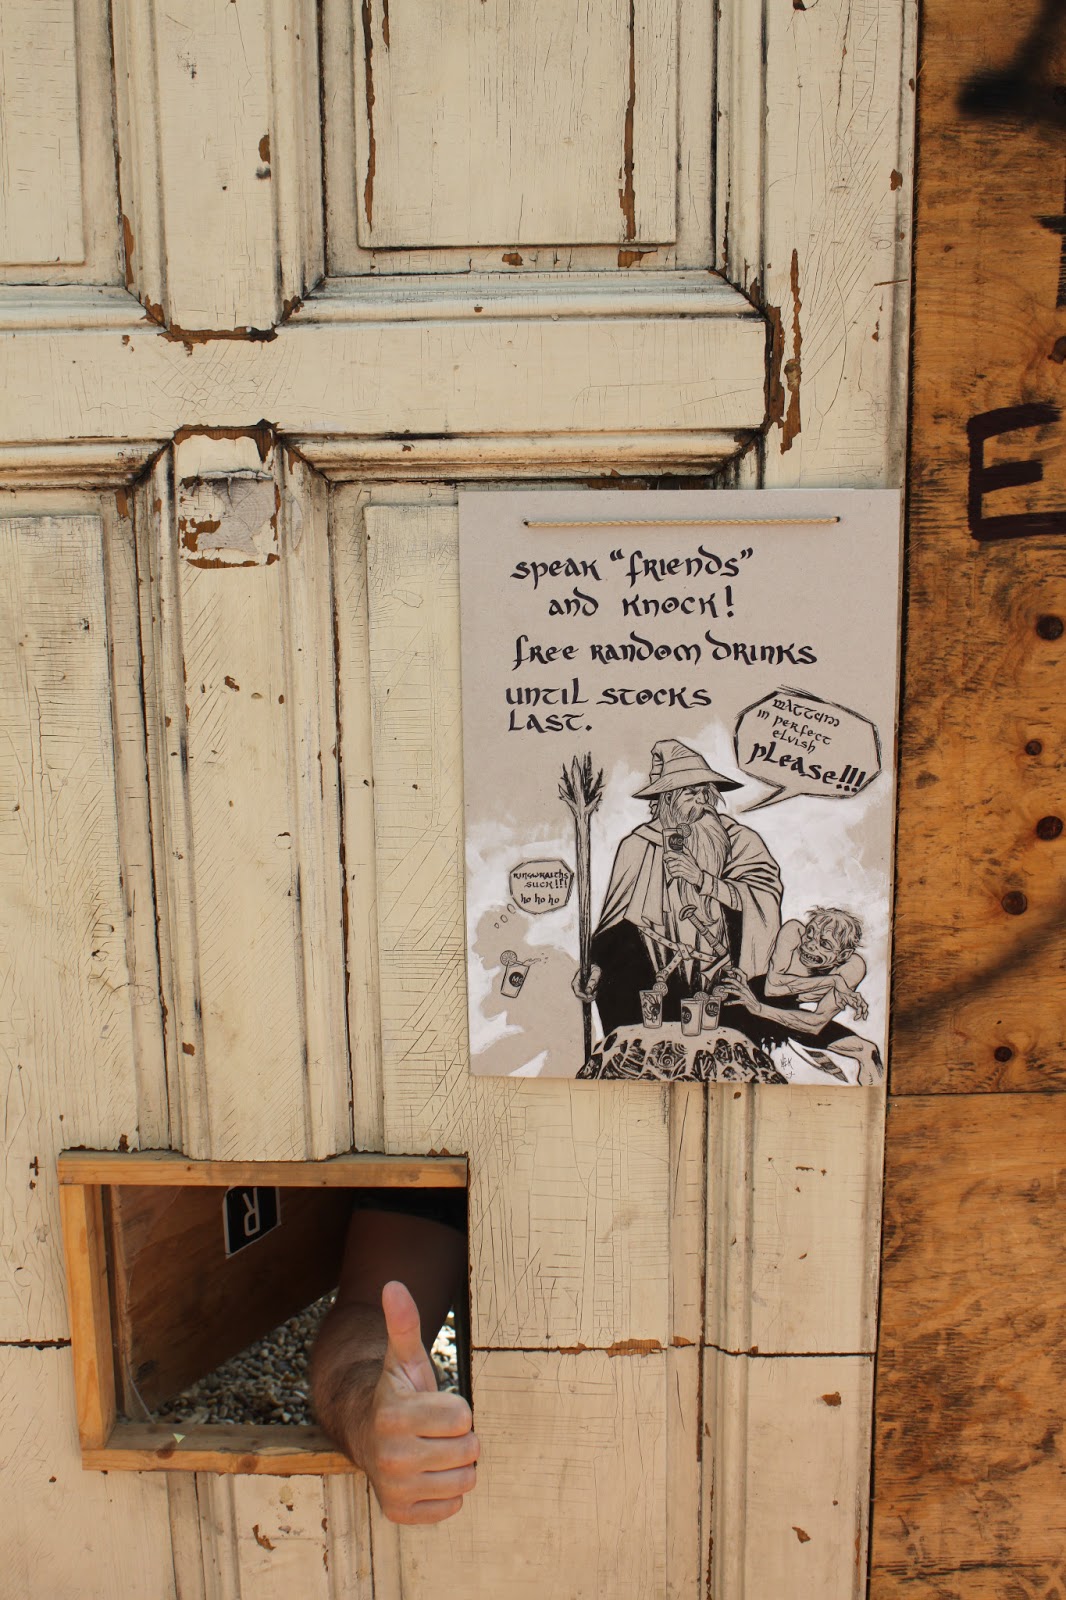 speak "friends"
and knock!
free random drinks
until stocks
last.
in perfect
elvish
please!!!
ringwraiths
suck!!!
ho ho ho
E
R